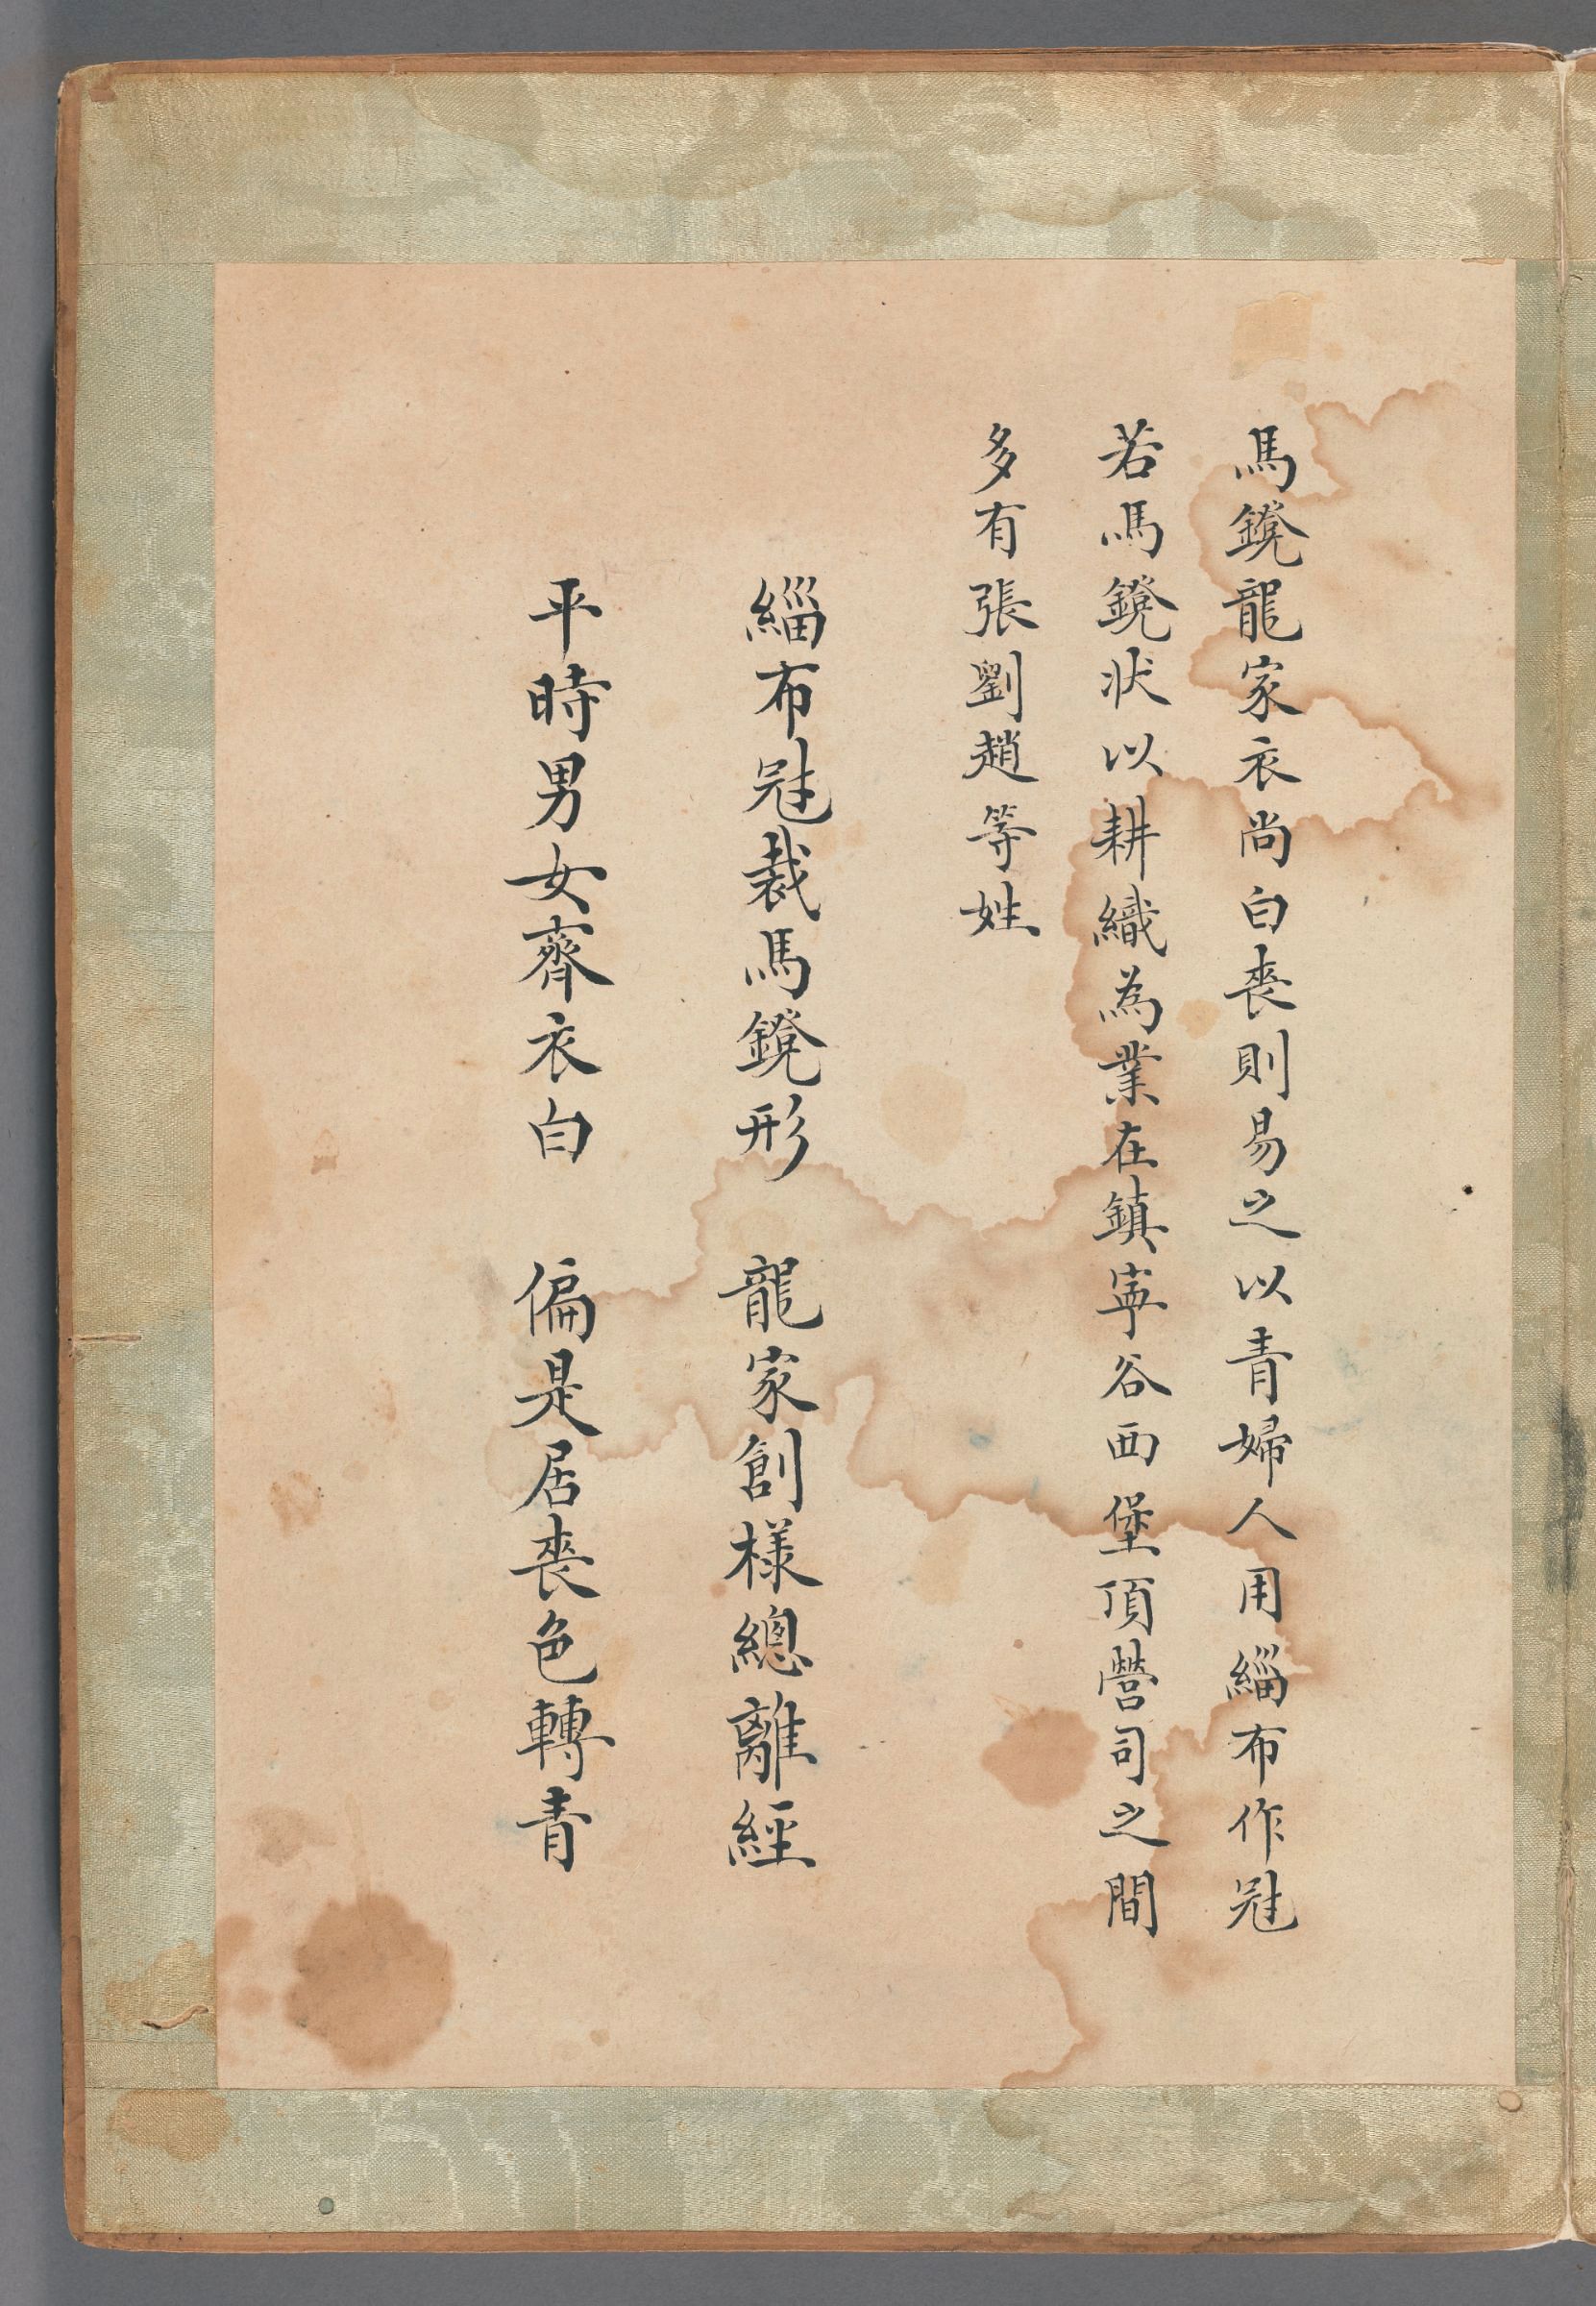 馬鐙龍家衣尚白喪則易之以青婦人用緇布作冠
若馬鐙狀以耕織為業在鎮寧谷西堡頂營司之間
多有張劉趙等姓
緇布冠裁馬鐙形　龍家創樣總離經
平時男女齊衣白　偏是居喪色轉青